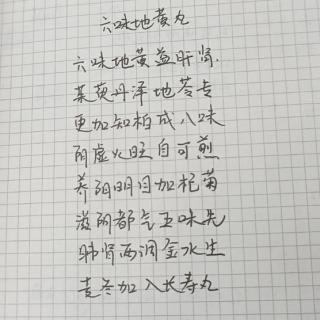 六味地黄丸
六味地黄益肝肾.
茱萸丹泽地苓专
更加知柏成八味
阴虚火旺自可煎
养阴明目加杞菊
滋阴都气五味先
肺肾两调金水生
麦冬加入长寿丸